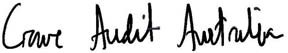 Crowe Audit Australia